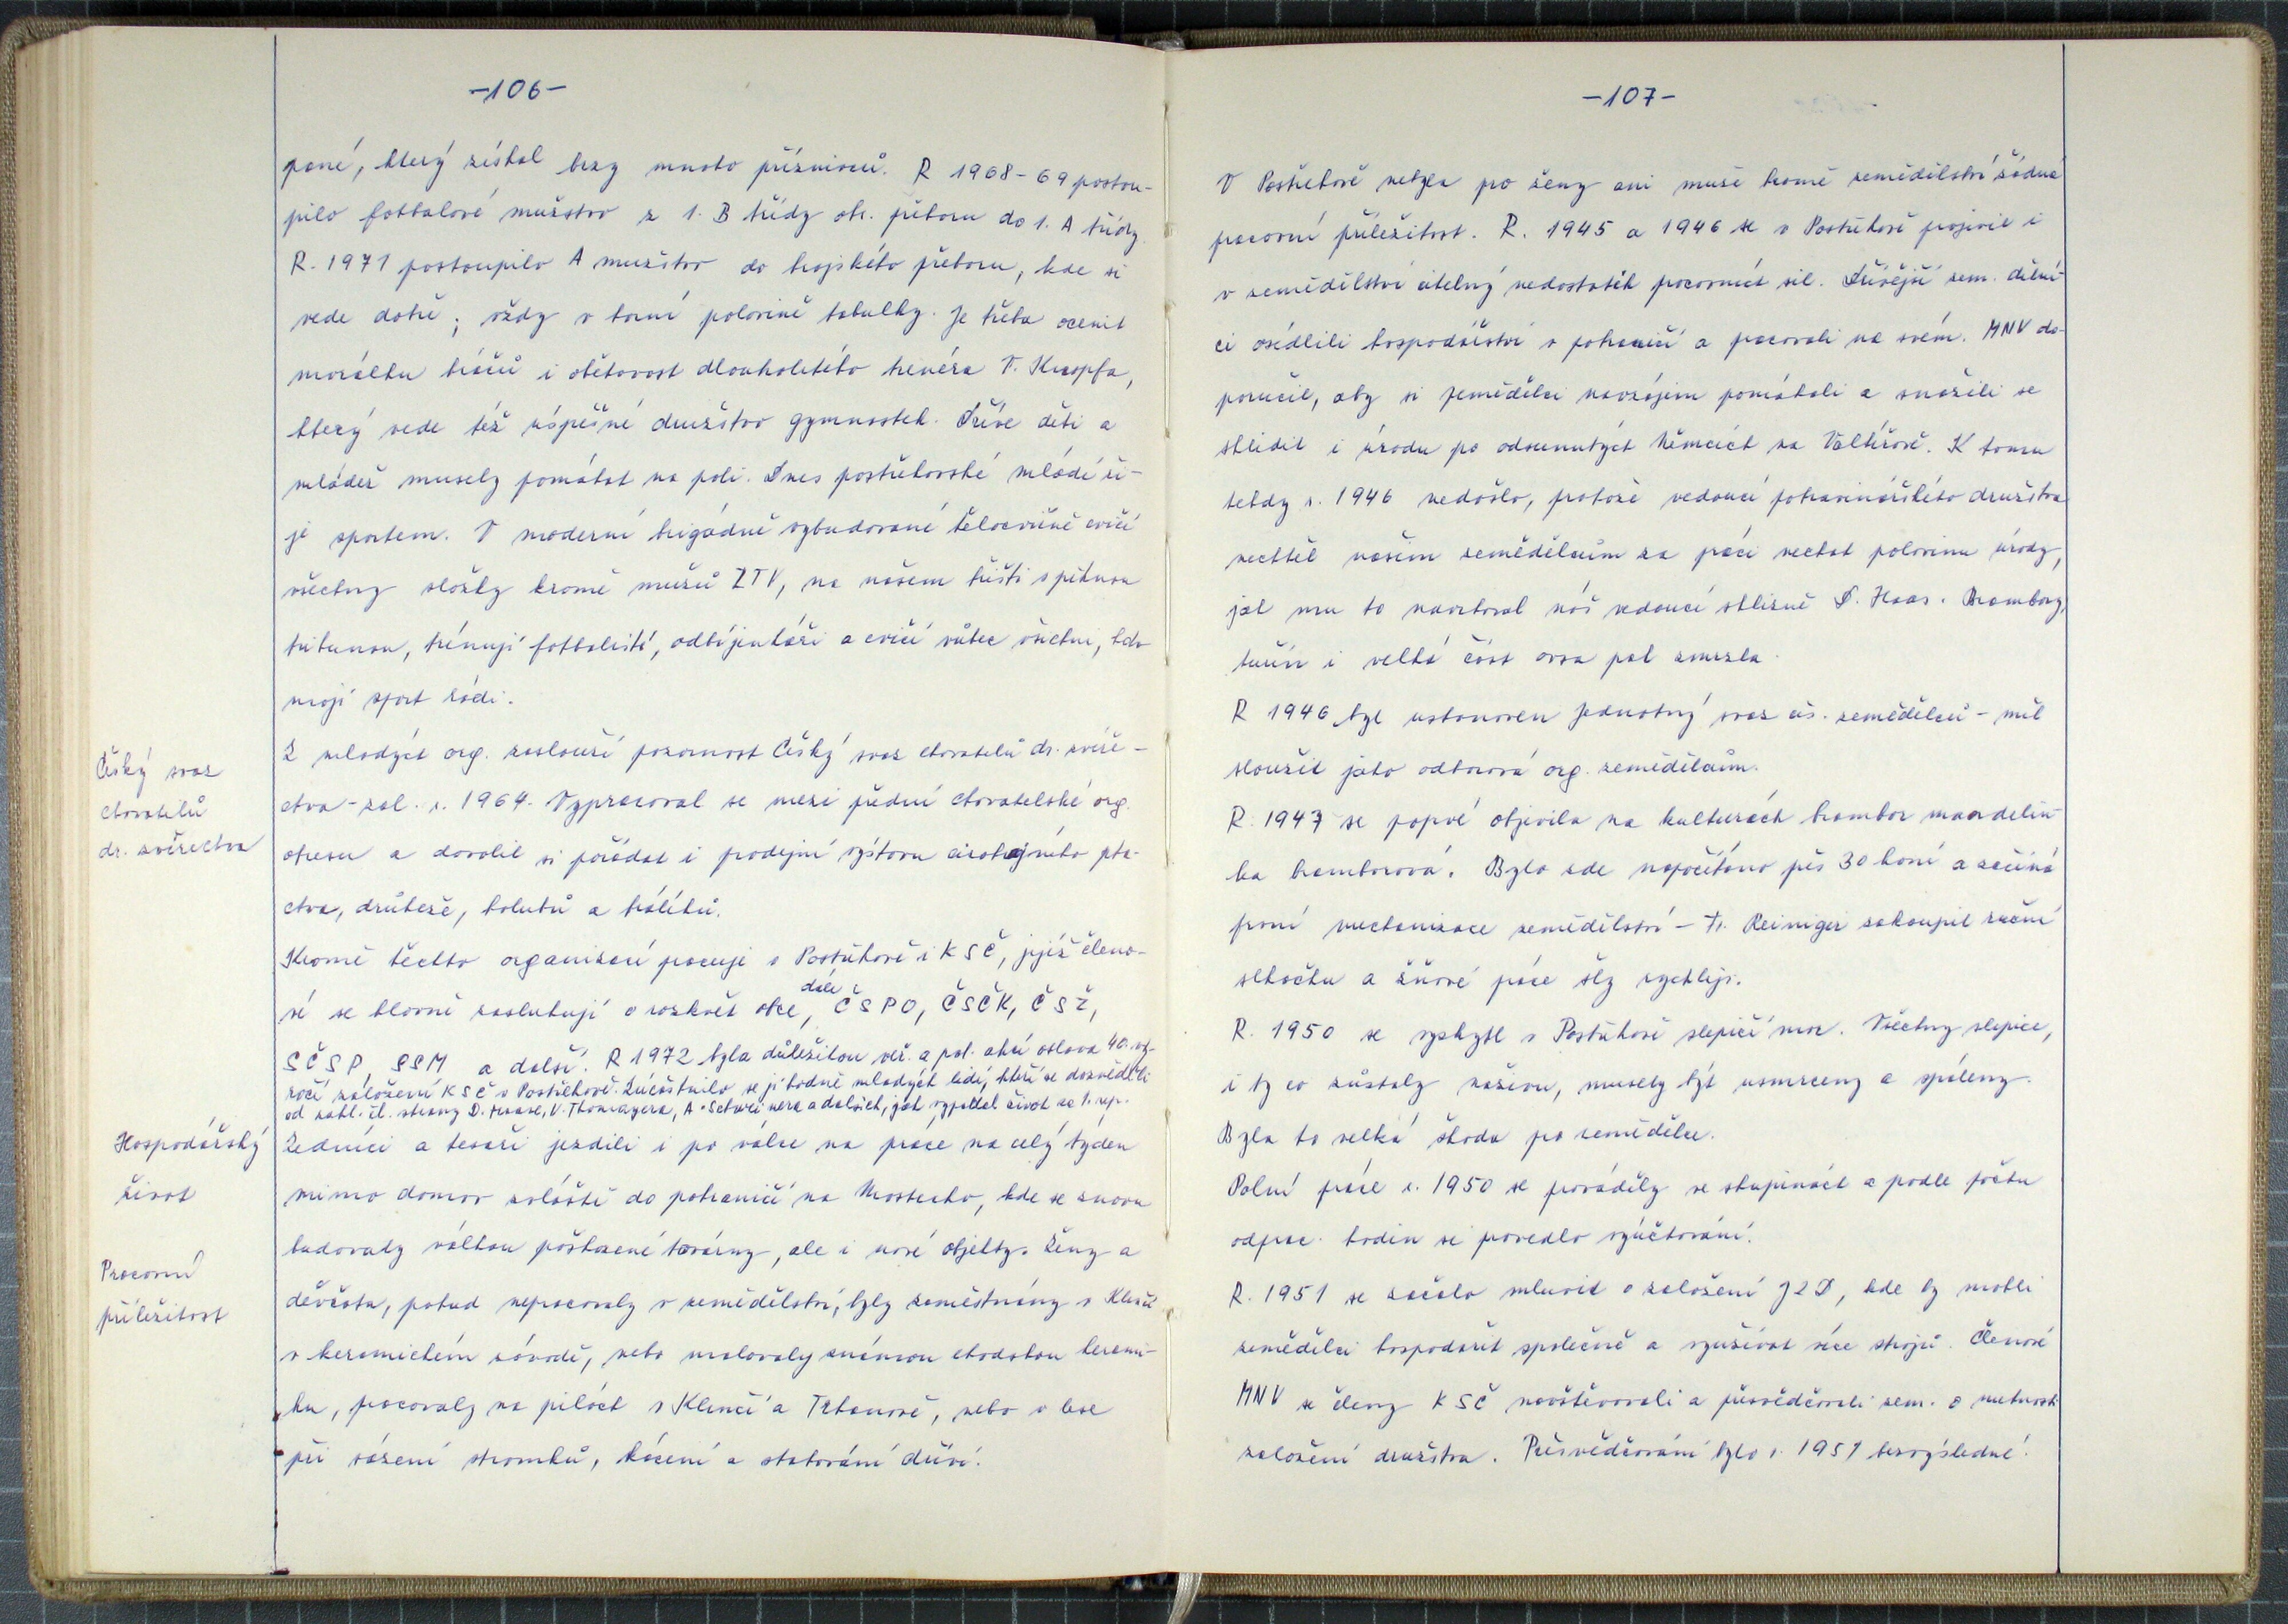 -106-
pané, který získal brzy mnoho příznivců. R 1968-69 postou-
pilo fotbalové mužstvo z 1. B třídy okr. přeboru do 1. A třídy.
R. 1971 postoupilo A mužstvo do krajského přeboru, kde si
vede dobře; vždy v horní polovině tabulky. Je třeba ocenit
morálku hráčů i obětavost dlouholetého trenéra V. Knopfa,
který vede též úspěšné družstvo gymnastek. Dříve děti a
mládež musely pomáhat na poli. Dnes postřekovské mládí ži-
je sportem. V moderní brigádně vybudované tělocvičně cvičí
všechny složky kromě mužů ZTV, na našem hřišti s pěknou
tribunou, trénují fotbalisté, odbíjenkáři a cvičí vůbec všichni, kdo
mají sport rádi.
Český svaz
chovatelů
dr. zvířectva
Z mladých org. zaslouží pozornost Český svaz chovatelů dr. zvíře-
ctva - zal. r. 1964. Vypracoval se mezi přední chovatelské org.
okresu a dovolil si pořádat i prodejní výstavu cizokrajného pta-
ctva, drůbeže, holubů a králíků.
Kromě těchto organizací pracuje v Postřekově i KSČ, jejíž členo-
vé se hlavně zasluhují o rozkvět obce, dále ČSPO, ČSČK, ČSŽ,
SČSP, SSM a další. R 1972 byla důležitou veř. a pol. akcí oslava 40. vý-
ročí založení KSČ v Postřekově. Zúčastnilo se jí hodně mladých lidí, kteří se dozvěděli
od zakl. čl. strany D. Haase, V. Thomayera, A. Schweinera a dalších, jak vypadal život za 1. rep.
Hospodářský
život
Zedníci a tesaři jezdili i po válce na práce na celý týden
mimo domov zvláště do pohraničí na Mostecko, kde se znovu
budovaly válkou poškozené továrny, ale i nové objekty. Ženy a
Pracovní
příležitost
děvčata, pokud nepracovaly v zemědělství, byly zaměstnány v Klenčí
v keramickém závodě, nebo malovaly známou chodskou kerami-
ku, pracovaly na pilách v Klenčí a Trhanově, nebo v lese
při sázení stromků, kácení a stahování dříví.
-107-
V Postřekově nebyla pro ženy ani muže kromě zemědělství žádná
pracovní příležitost. R. 1945 a 1946 se v Postřekově projevil i
v zemědělství citelný nedostatek pracovních sil. Dřívější zem. dělní-
ci osídlili hospodářství v pohraničí a pracovali na svém. MNV do-
poručil, aby si zemědělci navzájem pomáhali a snažili se
sklidit i úrodu po odsunutých Němcích na Valtířově. K tomu
tehdy r. 1946 nedošlo, protože vedoucí potravinářského družstva
nechtěl našim zemědělcům za práci nechat polovinu úrody,
jak mu to navrhoval náš vedoucí sklizně D. Haas. Brambory,
tuřín i velká část ovsa pak zmrzla.
R 1946 byl ustanoven Jednotný svaz čs. zemědělců - měl
sloužit jako odborová org. zemědělcům.
R. 1947 se poprvé objevila na kulturách brambor mandelin-
ka bramborová. Bylo zde napočítáno přes 30 koní a začíná
první mechanizace zemědělství - Fr. Reiniger zakoupil žací
sekačku a žňové práce šly rychleji.
R. 1950 se vyskytl v Postřekově slepičí mor. Všechny slepice,
i ty co zůstaly naživu, musely být usmrceny a spáleny.
Byla to velká škoda pro zemědělce.
Polní práce r. 1950 se prováděly ve skupinách a podle počtu
odprac. hodin se provedlo vyúčtování.
R. 1951 se začalo mluvit o založení JZD, kde by mohli
zemědělci hospodařit společně a využívat více strojů. Členové
MNV se členy KSČ navštěvovali a přesvědčovali zem. o nutnosti
založení družstva. Přesvědčování bylo r. 1951 bezvýsledné.